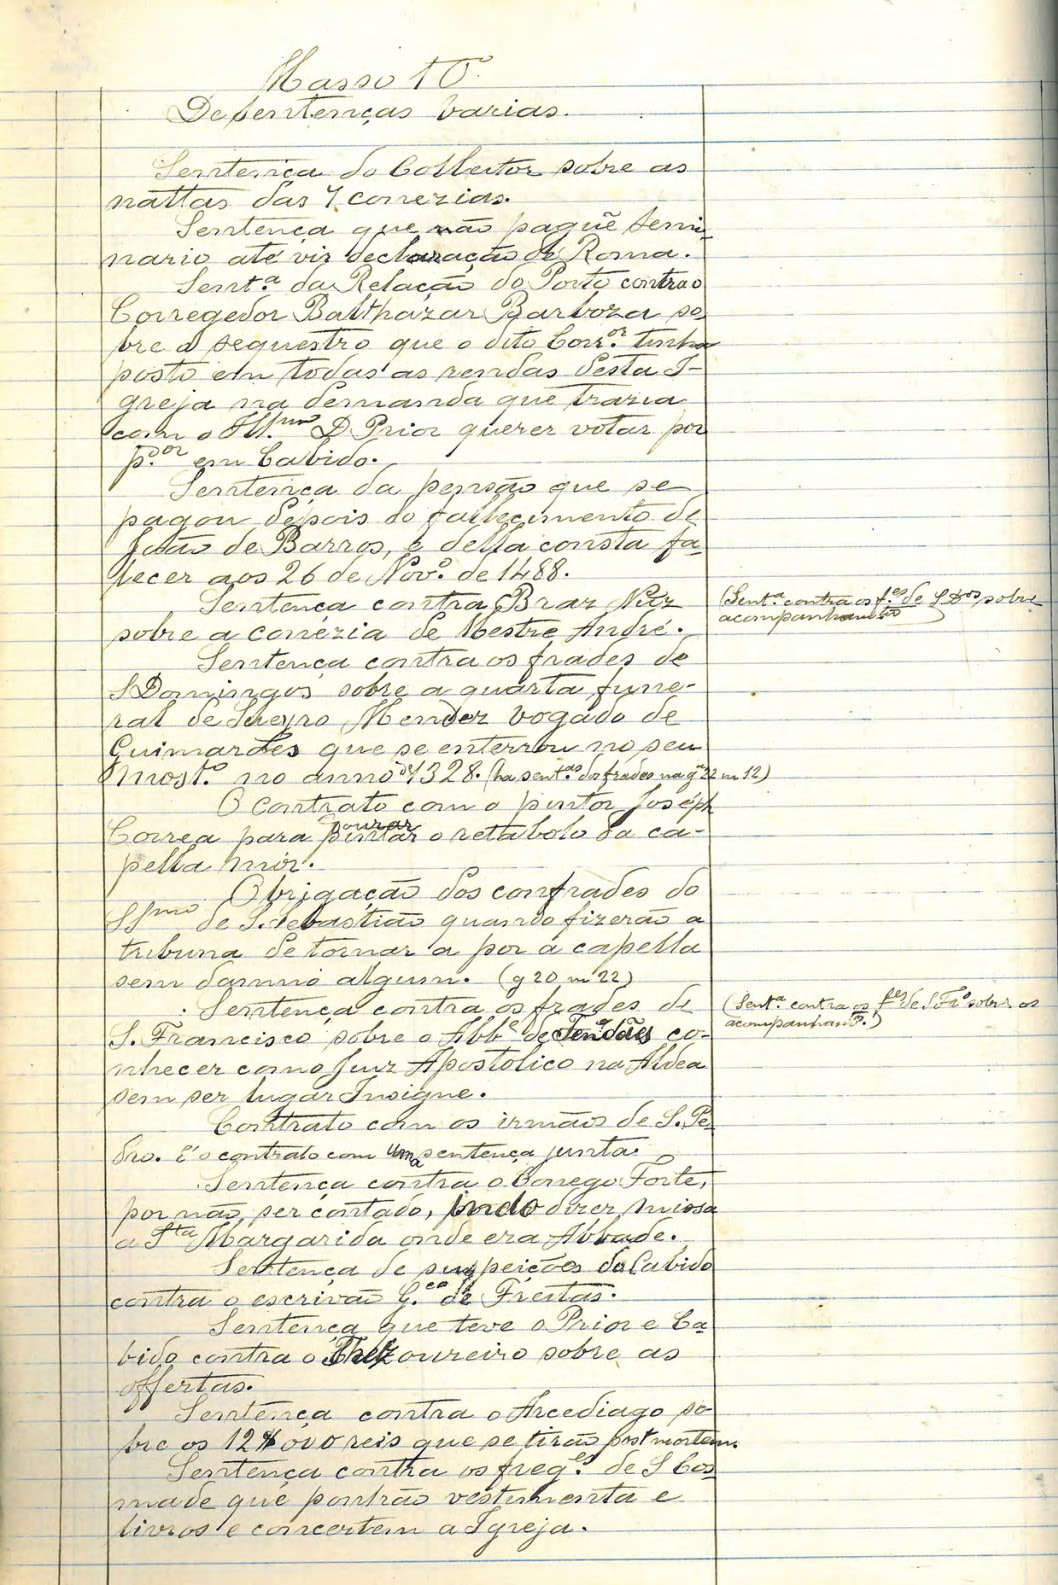 Masso 10.
De sentenças varias.
Sentença do Collector sobre as
nattas das 7 conezias.
Sentença que não paguẽ semi-
nario até vir declaração de Roma.
Sent.ª da Relação do Porto contra o
Corregedor Balthazar Barboza so-
bre o sequestro que o dito Corr.or tinha
posto em todas as rendas desta I-
greja na demanda que trazia
com o Ill.mo D Prior querer votar por
p.or em Cabido.
Sentença da pensão que se
pagou depois do fallecimento de
João de Barros, e della consta fa-
lecer aos 26 de Nov.o de 1488.
Sentença contra Braz Nitz
sobre a conézia de Mestre André.
(Sent.ª contra os f.es de S D.os sobre
acompanham.tos)
Sentença contra os frades de
S Domingos sobre a quarta fune-
ral de Sueyro Mendez vogado de
Guimarães que se enterrou no seu
most.o no anno de 1328. (ha sent.as dos frades na g.ª 22 m 12)
O contrato com o pintor Joséph
Correa para pintar dourar o retabolo da ca-
pella mór.
Obrigação dos confrades do
SSmo de S. Sebastião quando fizerão a
tribuna de tornar a por a capella
sem damno algum. (g 20 m 22)
Sentença contra os frades de
(Sent.ª contra os f.es de S Fr.o sobre os
acompanham.tos)
S. Francisco sobre o Abb.e de Tendães co-
nhecer como Juiz Apostolico na Aldea
sem ser lugar Insigne.
Contrato com os irmãos de S. Pe-
dro. É o contrato com uma sentença junta.
Sentença contra o Conego Forte,
por não ser contado, indo dizer missa
a S.ta Margarida onde era Abbade.
Sentença de suspeições do Cabido
contra o escrivão G.co de Freitas.
Sentença que teve o Prior e Ca-
bido contra o Thezoureiro sobre as
offertas.
Sentença contra o Arcediago so-
bre os 12$000 reis que se tirão post mortem.
Sentença contra os freg.es de S Cos-
made que ponhão vestimenta e
livros e concertem a Igreja.